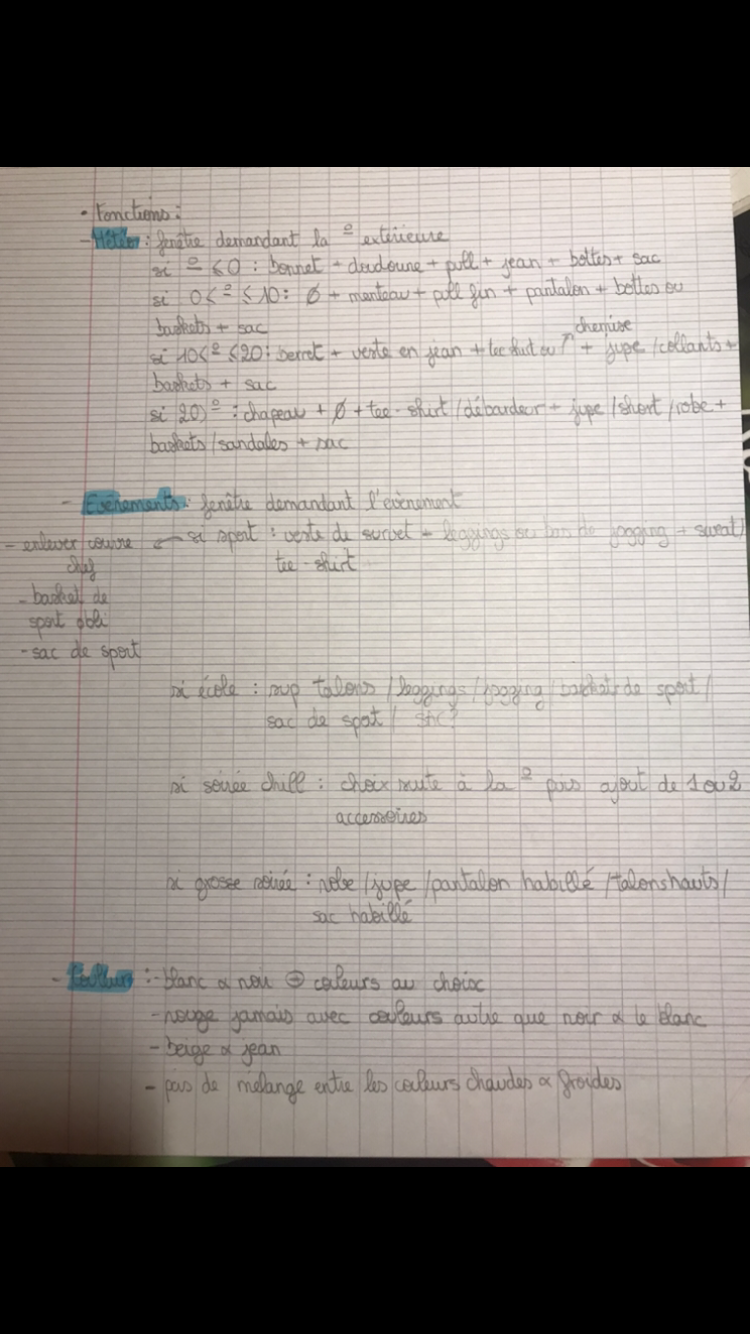 • Fonctions :
- Météo : fenêtre demandant la ° extérieure
si ° < 0 : bonnet + doudoune + pull + jean + bottes + sac
si 0 < ° ≤ 10 : ∅ + manteau + pull fin + pantalon + bottes ou
baskets + sac
chemise
si 10 < ° ≤ 20 : berret + veste en jean + tee shirt ou ↑ + jupe / collants +
baskets + sac
si 20 > ° : chapeau + ∅ + tee-shirt / débardeur + jupe / short / robe +
baskets / sandales + sac
- Evénements : fenêtre demandant l'evènement
- enlever couvre ← si sport : veste de survet + leggings ou bas de jogging + sweat /
chef
tee-shirt
- basket de
sport obli
- sac de sport
si école : sup talons / leggings / jogging / baskets de sport /
sac de spot /
si soirée chill : choix suite à la ° puis ajout de 1 ou 2
accessoires
si grosse soirée : robe / jupe / pantalon habillé / talons hauts /
sac habillé
- Couleurs : - blanc & noir couleurs au choix
- rouge jamais avec couleurs autre que noir & le blanc
- beige & jean
- pas de mélange entre les couleurs chaudes & froides